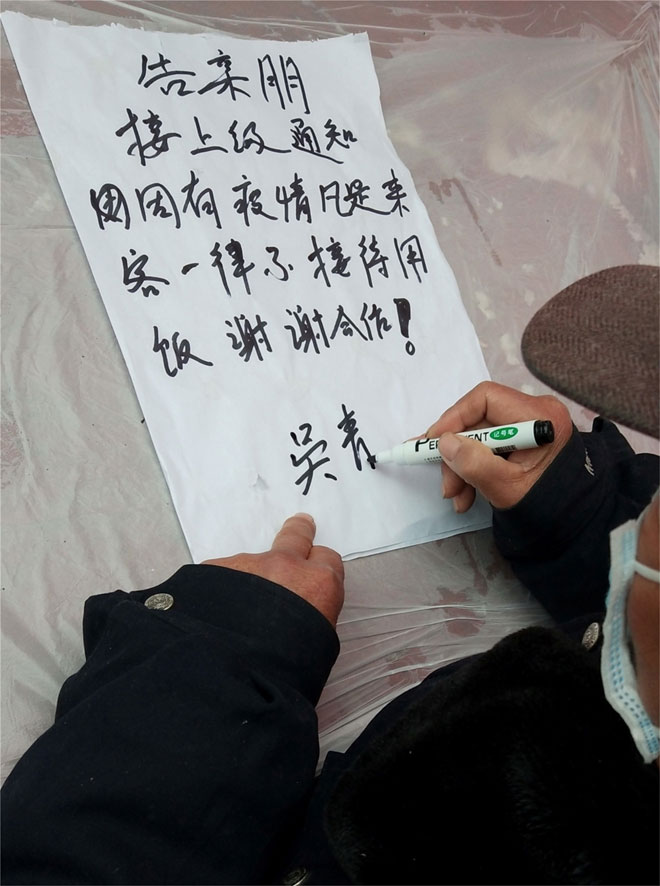 告亲朋
接上级通知
因有疫情凡是来
客一律不接待用
饭谢谢合作!
吴青
PERMANENT 记号笔